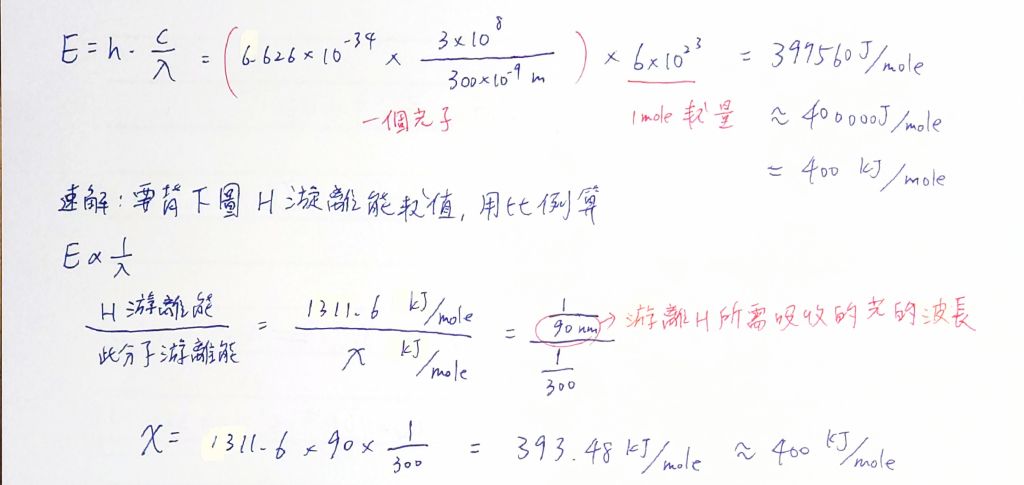 E = h · c/λ = (6.626 × 10^-34 × 3×10^8 / 300×10^-9 m) × 6×10^23 = 397560 J/mole
一個光子 1mole 數量 ≈ 400000J/mole
= 400 kJ/mole
速解：要背下圖 H 游離能數值，用比例算
E ∝ 1/λ
H 游離能 / 此分子游離能 = 1311.6 kJ/mole / x kJ/mole = (1/90 nm) / (1/300) → 游離H所需吸收的光的波長
x = 1311.6 × 90 × 1/300 = 393.48 kJ/mole ≈ 400 kJ/mole